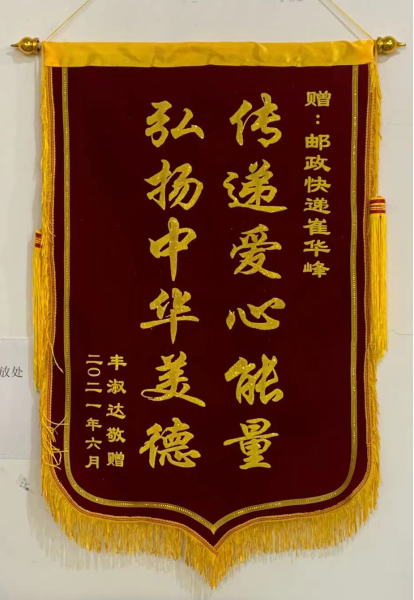 赠：邮政快递崔华峰
传递爱心能量
弘扬中华美德
丰淑达敬赠
二〇二一年六月
放处